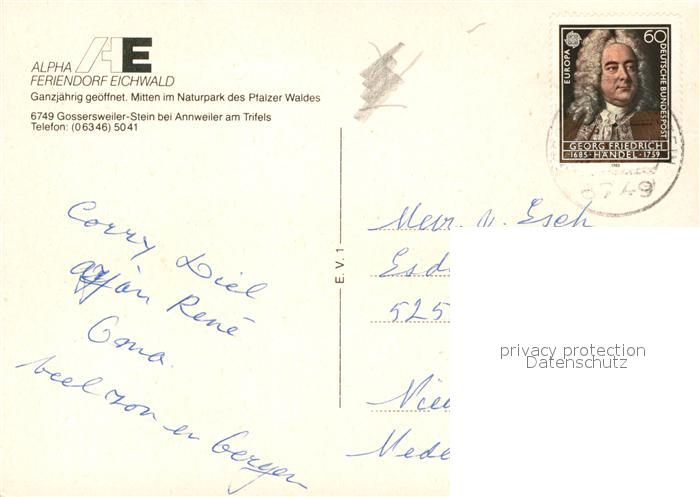 ALPHA AE
FERIENDORF EICHWALD
Ganzjährig geöffnet. Mitten im Naturpark des Pfalzer Waldes
6749 Gossersweiler-Stein bei Annweiler am Trifels
Telefon: (0 63 46) 50 41
EUROPA
60
DEUTSCHE BUNDESPOST
GEORG FRIEDRICH
1685 · HÄNDEL · 1759
6749
Corry Diel
Arjan René
Oma.
veel zon en bergen
E. V. 1
Mevr. v. Esch
Esd
525
Nieu
Nede
privacy protection
Datenschutz